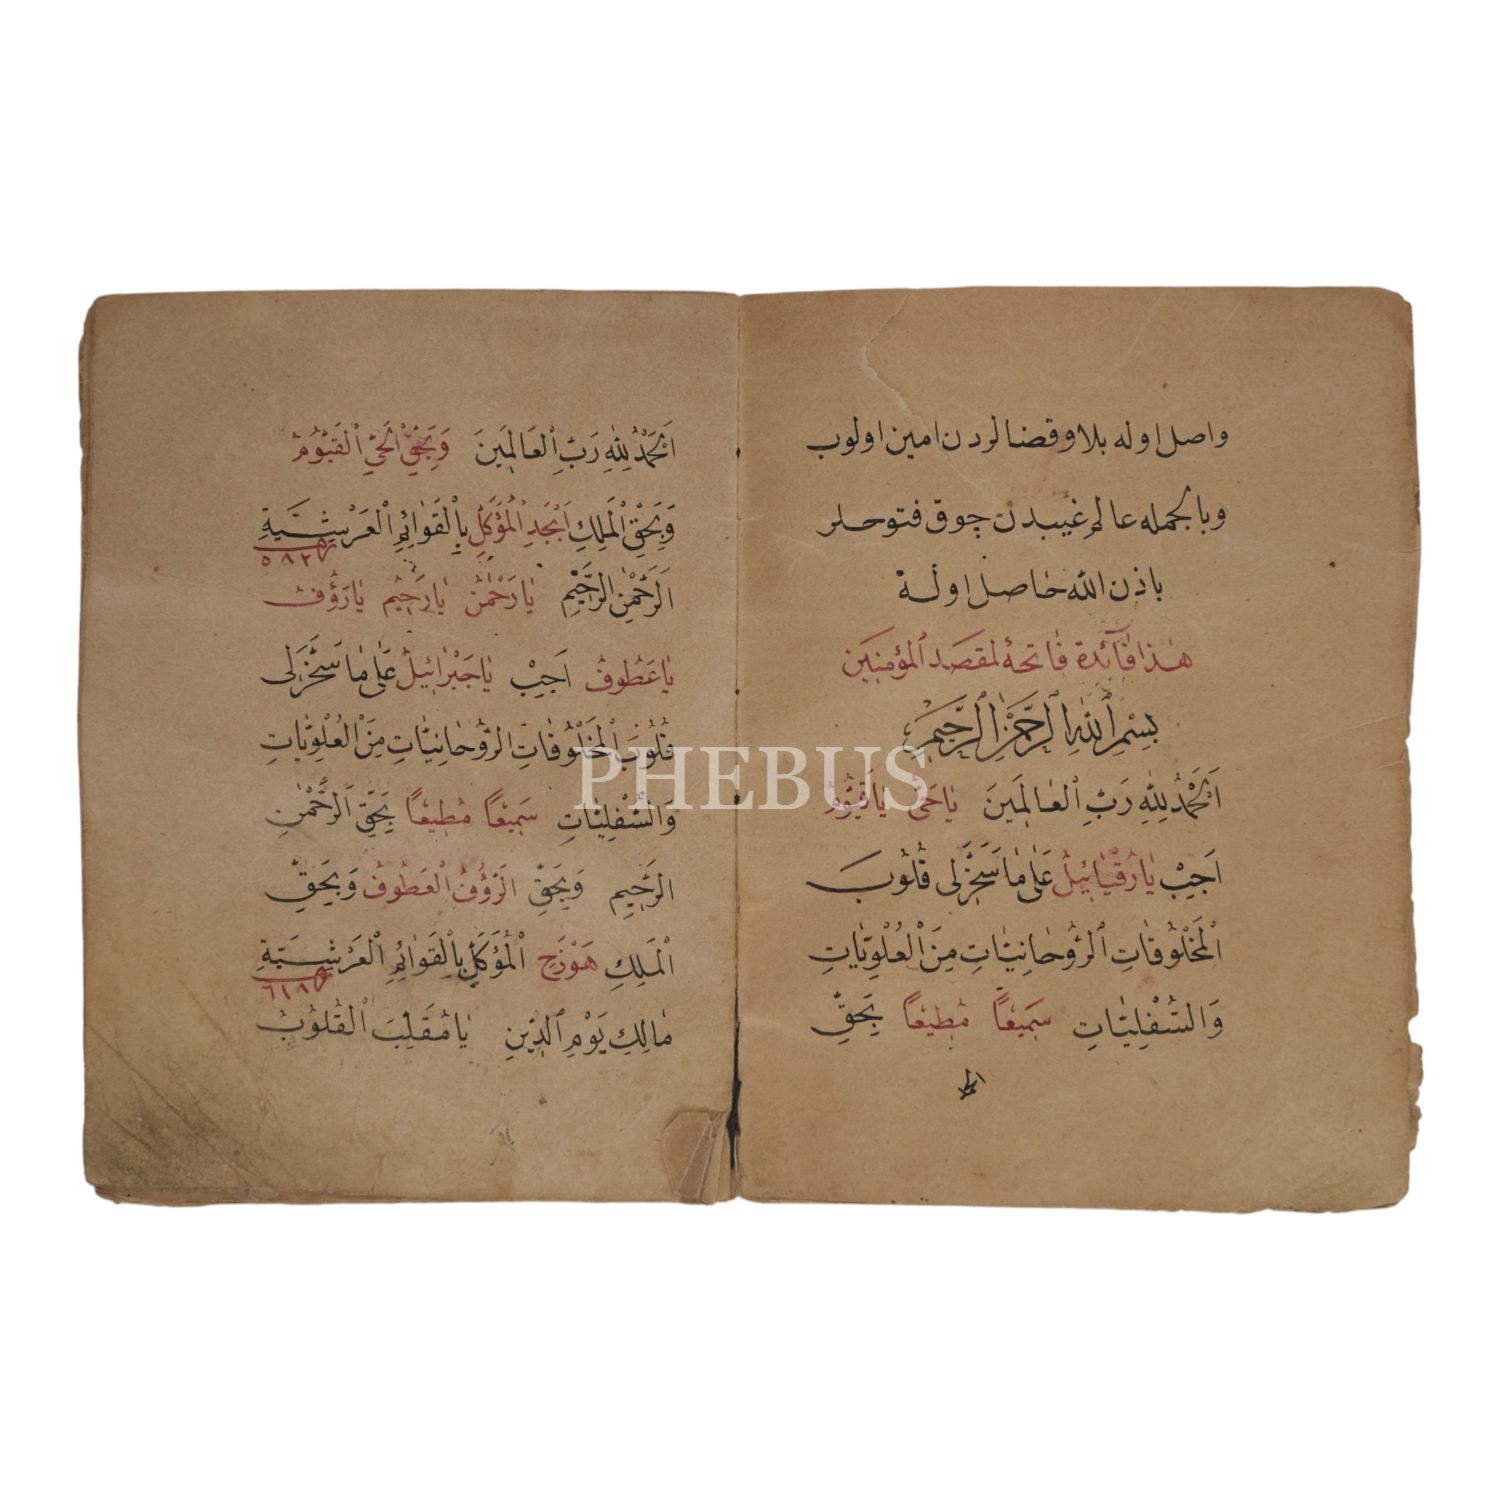 واصل اوله بلا وقضالردن امین اولوب
وبالجمله عالم غیبدن چوق فتوحلر
باذن الله حاصل اوله
هٰذا فَآئدة فاتحهٔ لمقصد المؤمنين
بِسْمِ اللهِ الرَّحْمٰنِ الرَّحِيمِ
اَلْحَمْدُ لِلّٰهِ رَبِّ الْعَالَمِينَ يَا حَيُّ يَا قَيُّومُ
اَجِبْ يَا رُقْيَائِيلُ عَلٰى مَا سَخَّرَ لِى قُلُوبَ
الْمَخْلُوقَاتِ الرُّوحَانِيَّاتِ مِنَ الْعُلْوِيَّاتِ
وَالسُّفْلِيَّاتِ سَمِيعًا مُطِيعًا بِحَقِّ
الحمد
اَلْحَمْدُ لِلّٰهِ رَبِّ الْعَالَمِينَ وَبِحَقِّ الْحَيِّ الْقَيُّومُ
وَبِحَقِّ الْمَلِكِ اَبْجَدِ الْمُؤَكَّلِ بِالْقَوَائِمِ الْعَرْشِيَّةِ
٥٨٢
اَلرَّحْمٰنِ الرَّحِيمِ يَا رَحْمٰنُ يَا رَحِيمُ يَا رَؤُفُ
يَا عَطُوفُ اَجِبْ يَا جَبْرَائِيلُ عَلٰى مَا سَخَّرَ لِى
قُلُوبَ الْمَخْلُوقَاتِ الرُّوحَانِيَّاتِ مِنَ الْعُلْوِيَّاتِ
وَالسُّفْلِيَّاتِ سَمِيعًا مُطِيعًا بِحَقِّ الرَّحْمٰنِ
الرَّحِيمِ وَبِحَقِّ الرَّؤُفُ الْعَطُوفُ وَبِحَقِّ
الْمَلِكِ هَوْزَحِ الْمُؤَكَّلِ بِالْقَوَائِمِ الْعَرْشِيَّةِ
٦١٨
مَالِكِ يَوْمِ الدِّينِ يَا مُقَلِّبَ الْقُلُوبُ
PHEBUS